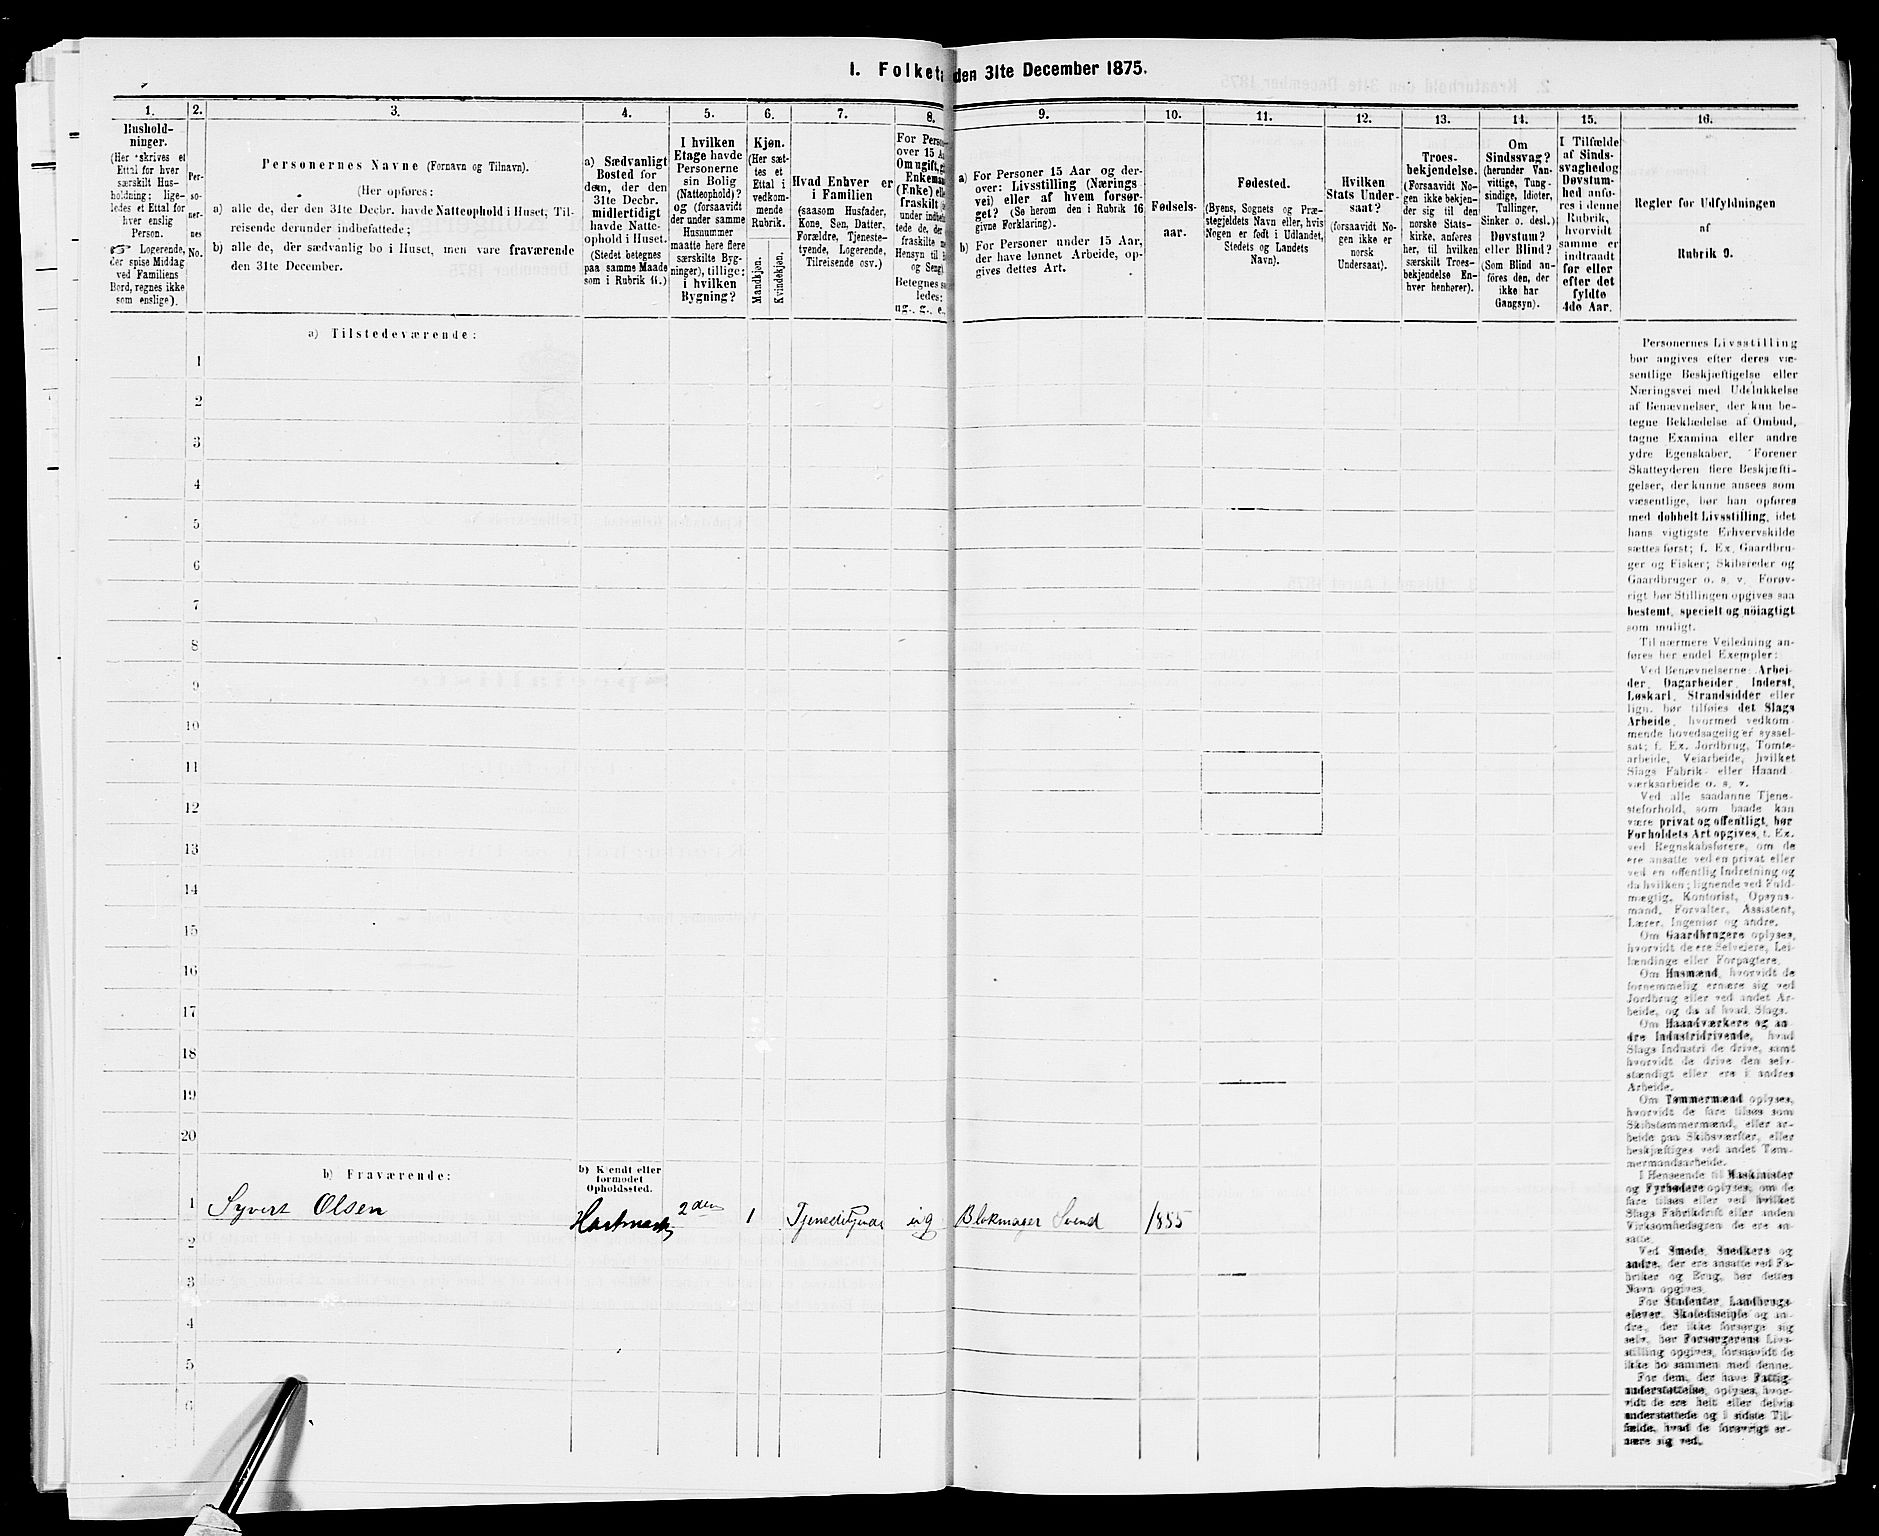 1. Folket den 31te December 1875.
1.
Hushold-
ninger.
(Her skrives et
Ettal for hver
særskilt Hus-
holdning; lige-
ledes et Ettal for
hver enslig
Person.
☞ Logerende,
der spise Middag
ved Familiens
Bord, regnes ikke
som enslige).
2.
Per-
so-
ner-
nes
No.
3.
Personernes Navne (Fornavn og Tilnavn).
(Her opføres:
a) alle de, der den 31te Decbr. havde Natteophold i Huset, Til-
reisende derunder indbefattede;
b) alle de, der sædvanlig bo i Huset, men vare fraværende
den 31te December.
4.
a) Sædvanligt
Bosted for
dem, der den
31te Decbr.
midlertidigt
havde Natte-
ophold i Huset.
(Stedet betegnes
paa samme Maade
som i Rubrik 11.)
5.
I hvilken
Etage havde
Personerne
sin Bolig
(Natteophold)?
og (forsaavidt
der under samme
Husnummer
maatte høre flere
særskilte Byg-
ninger), tillige:
i hvilken
Bygning?
6.
Kjøn.
(Her sæt-
tes et
Ettal i
vedkom-
mende
Rubrik.
Mandkjøn.
Kvindekjøn.
7.
Hvad Enhver er
i Familien
(saasom Husfader,
Kone, Søn, Datter,
Forældre, Tjeneste-
tyende, Logerende,
Tilreisende osv.)
8.
For Perso
over 15 A
Om ugift, g
Enkema
(Enke) ell
fraskilt
under indbe
tede de, de
fraskilte
Hensyn til
og Seng.
Betegnes s
ledes:
ug., g., e.,
9.
a) For Personer 15 Aar og der-
over: Livsstilling (Nærings
vei) eller af hvem forsør-
get? (Se herom den i Rubrik 16
givne Forklaring).
b) For Personer under 15 Aar,
der have lønnet Arbeide, op-
gives dettes Art.
10.
Fødsels-
aar.
11.
Fødested.
(Byens, Sognets og Præ-
stegjeldets Navn eller, hvis
Nogen er født i Udlandet,
Stedets og Landets
Navn).
12.
Hvilken
Stats Under-
saat?
(forsaavidt No-
gen ikke er
norsk
Undersaat).
13.
Troes-
bekjendelse.
(Forsaavidt No-
gen ikke bekjen-
der sig til den
norske Stats-
kirke, anføres
her, til hvilken
særskilt Troes-
bekjendelse En-
hver henhører).
14.
Om
Sindssvag?
(herunder Van-
vittige, Tung-
sindige, Idioter,
Tullinger,
Sinker o. desl.)
Døvstum?
eller Blind?
(Som Blind an-
føres den, der
ikke har
Gangsyn).
15.
I Tilfælde
af Sinds-
svaghed og
Døvstum-
hed anfø-
res i denne
Rubrik,
hvorvidt
samme er
indtraadt
før eller
efter det
fyldte
4de Aar.
16.
Regler for Udfyldningen
af
Rubrik 9.
a) Tilstedeværende:
1
2
3
4
5
6
7
8
9
10
11
12
13
14
15
16
17
18
19
20
b) Fraværende:
b) Kjendt eller
formodet
Opholdssted.
1 Syvert Olsen 2den 1 ug Blokmager Svend 1855
2
3
4
5
6
Personernes Livsstilling
bør angives efter deres væ-
sentlige Beskjæftigelse eller
Næringsvei med Udelukkelse
af Benævnelser, der kun be-
tegne Beklædelse af Ombud,
tagne Examina eller andre
ydre Egenskaber. Forener
Skatteyderen flere Beskjæfti-
gelser, der kunne ansees som
væsentlige, bør han opføres
med dobbelt Livsstilling, idet
hans vigtigste Erhvervskilde
sættes først; f. Ex. Gaardbru-
ger og Fisker; Skibsreder og
Gaardbruger o. s. v. Forøv-
rigt bør Stillingen opgives saa
bestemt, specielt og nöiagtigt
som muligt.
Til nærmere Veiledning an-
føres her endel Exempler:
Ved Benævnelserne: Arbei-
der, Dagarbeider, Inderst,
Løskarl, Strandsidder eller
lign. bør tilføies det Slags
Arbeide, hvormed vedkom-
mende hovedsagelig er syssel-
sat; f. Ex. Jordbrug, Tomte-
arbeide, Veiarbeide, hvilket
Slags Fabrik- eller Haand-
værksarbeide o. s. v.
Ved alle saadanne Tjene-
steforhold, som baade kan
være privat og offentligt, bør
Forholdets Art opgives, t. Ex.
ved Regnskabsførere, om de
ere ansatte ved en privat eller
ved en offentlig Indretning og
da hvilken; lignende ved Fuld-
mægtig, Kontorist, Opsyns-
mand, Forvalter, Assistent,
Lærer, Ingeniør og andre.
Om Gaardbrugere oplyses,
hvorvidt de ere Selveiere, Lei-
lændinge eller Forpagtere.
Om Husmænd, hvorvidt de
fornemmelig ernære sig ved
Jordbrug eller ved andet Ar-
beide, og da af hvad Slags.
Om Haandværkere og an-
dre Industridrivende, hvad
Slags Industri de drive, samt
hvorvidt de drive den selv-
stændigt eller ere i andres
Arbeide.
Om Tømmermænd oplyses,
hvorvidt de fare tilsøs som
Skibstømmermænd, eller ar-
beide paa Skibsværfter, eller
beskjæftiges ved andet Tøm-
mermandsarbeide.
I Henseende til Maskinister
og Fyrbødere oplyses, om de
fare tilsøs eller ved hvilket
Slags Fabrikdrift eller anden
Virksomhedsgren de ere an-
satte.
Ved Smede, Snedkere og
andre, der ere ansatte ved Fa-
briker og Brug, bør dettes
Navn opgives.
For Studenter, Landbrugs-
elever, Skoledisciple og an-
dre, der ikke forsørge sig
selv, bør Forsørgerens Livs-
stilling opgives, forsaavidt de
ikke bo sammen med denne.
For dem, der have Fattig-
understøttelse, oplyses, hvor-
vidt de ere helt eller delvis
understøttede og i sidste Til-
fælde, hvad de forøvrigt er-
nære sig ved.